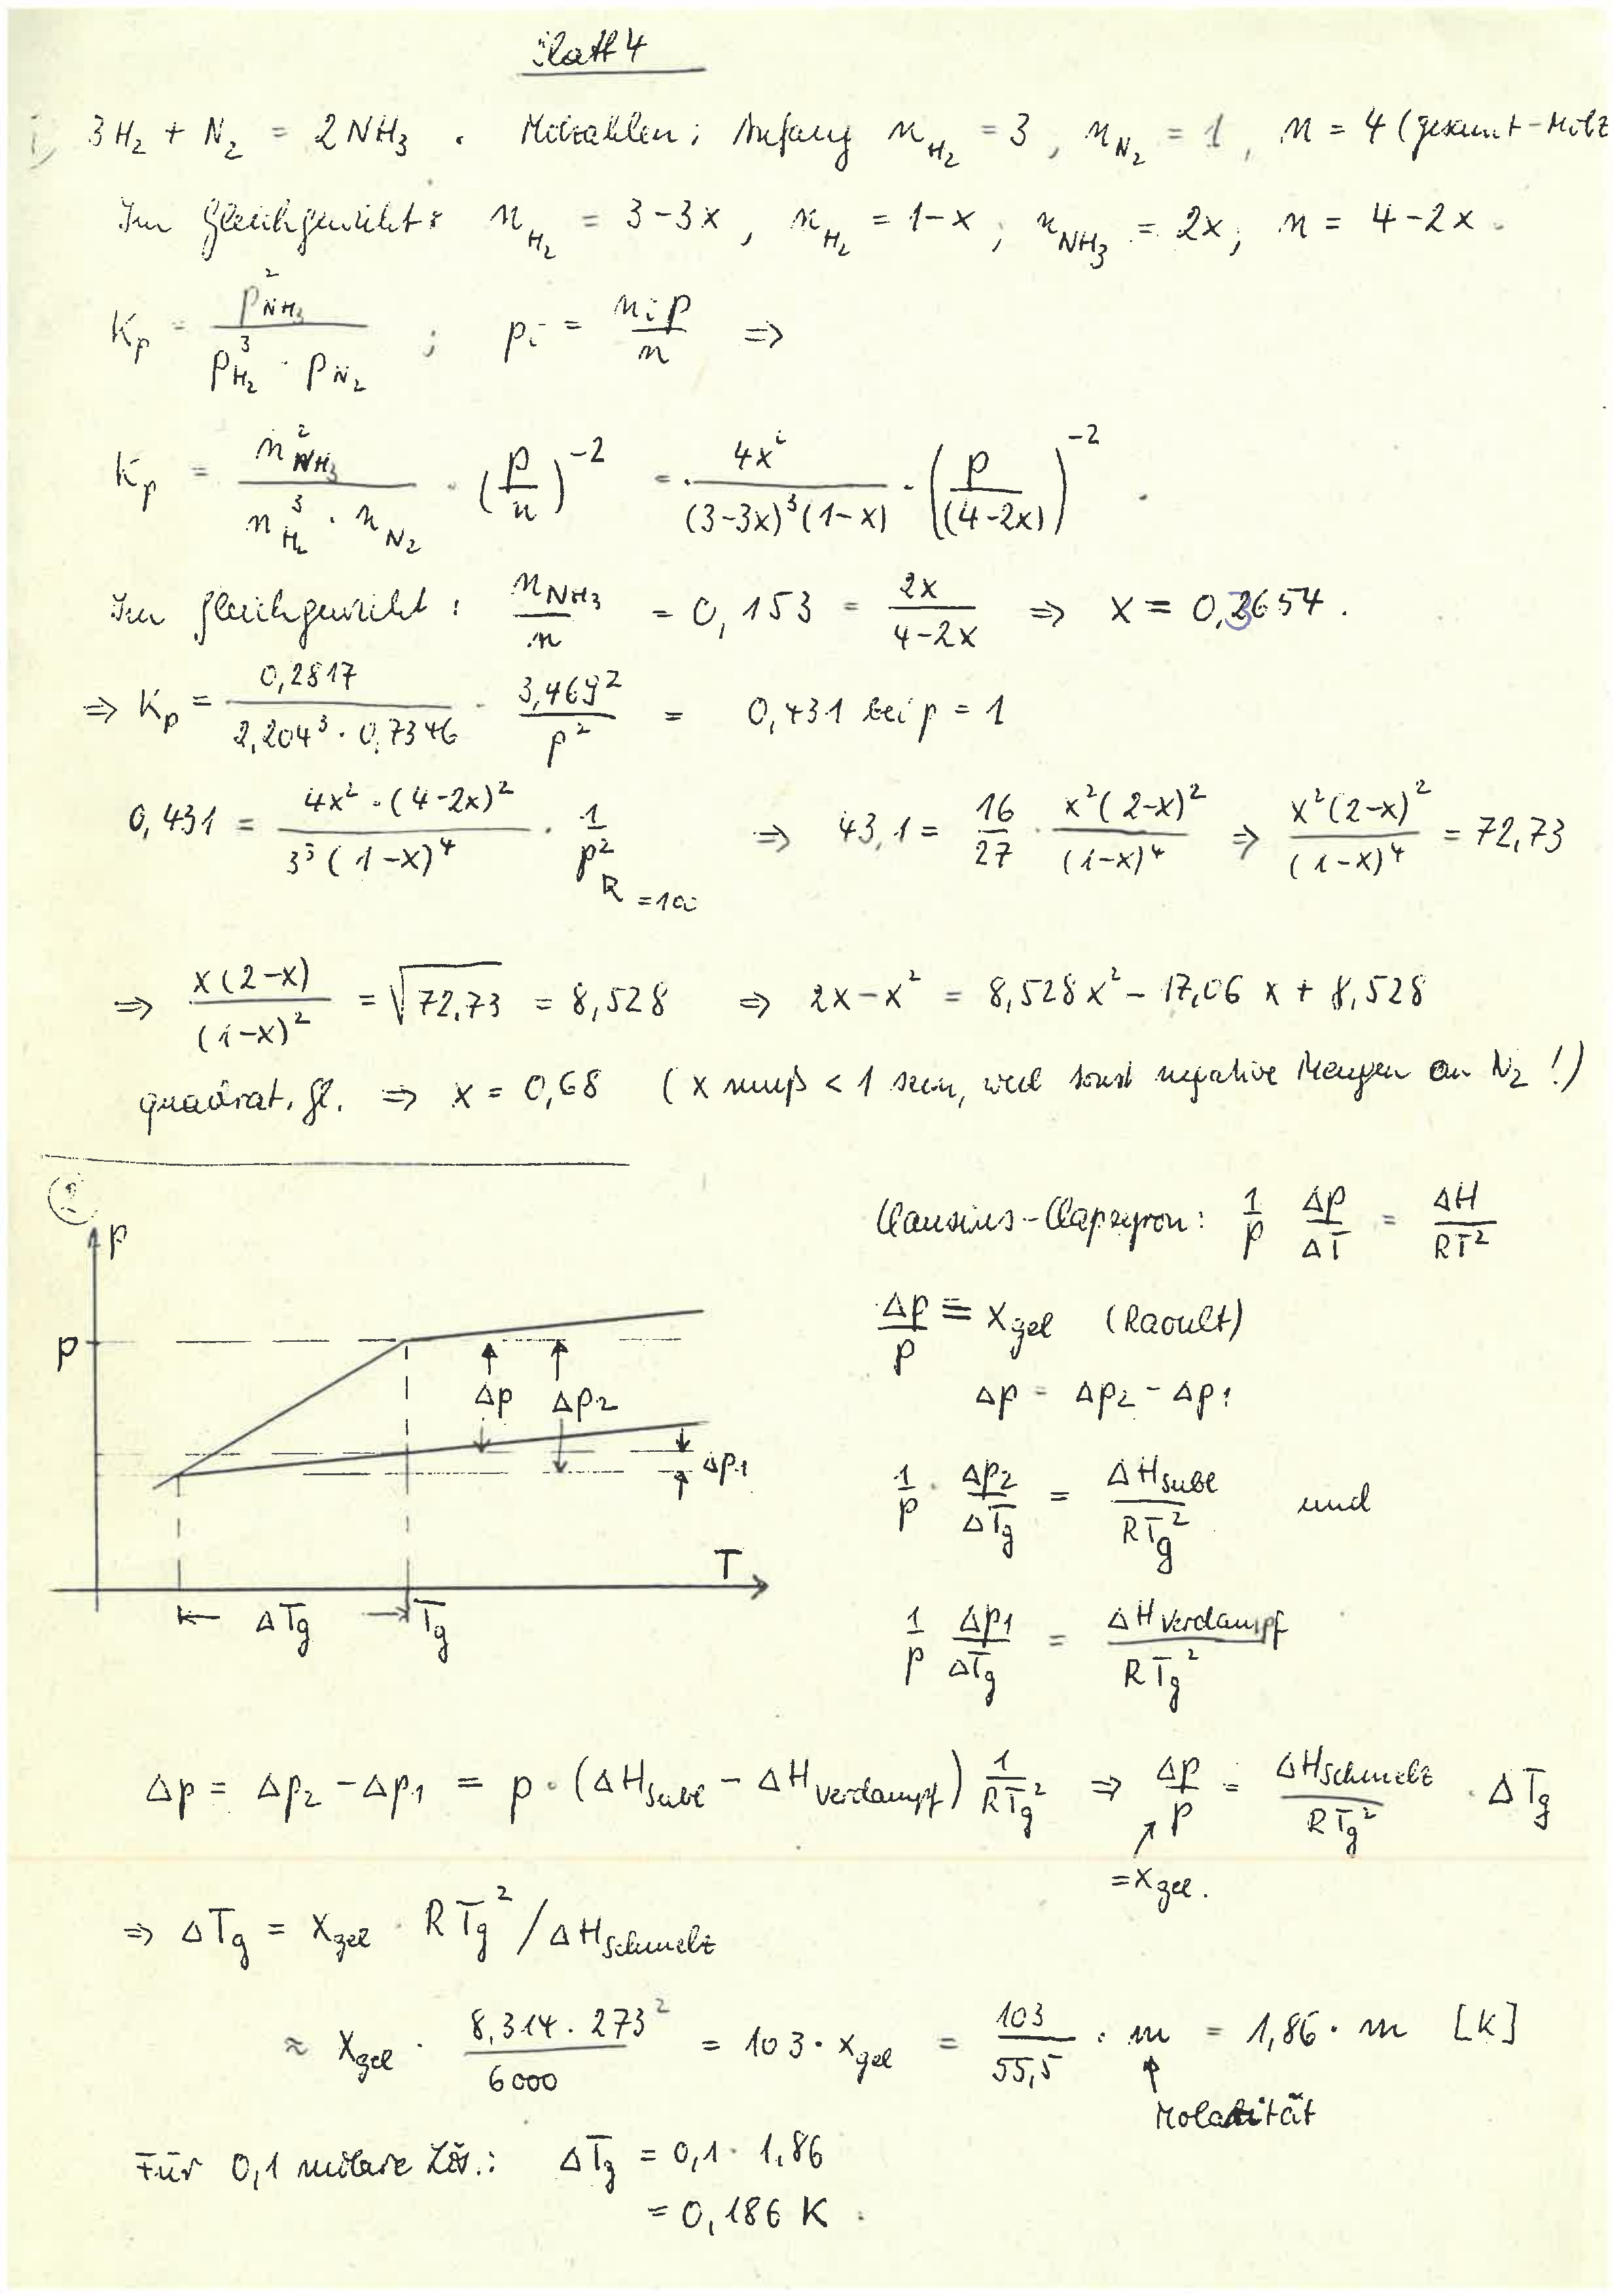 Blatt 4
1) 3H₂ + N₂ = 2NH₃ . Molzahlen: Anfang n_H₂ = 3, n_N₂ = 1, n = 4 (gesamt-Molz
Im Gleichgewicht: n_H₂ = 3-3x, n_H₂ = 1-x; n_NH₃ = 2x; n = 4-2x.
K_p = p²_NH₃ / (p³_H₂ · p_N₂) ; p_i = n_i p / n ⇒
K_p = n²_NH₃ / (n³_H₂ · n_N₂) · (p/n)⁻² = 4x² / ((3-3x)³(1-x)) · (p/(4-2x))⁻² .
Im Gleichgewicht: n_NH₃ / n = 0,153 = 2x / (4-2x) ⇒ x = 0,2654.
⇒ K_p = 0,2817 / (2,204³ · 0,7346) · 3,469² / p² = 0,431 bei p = 1
0,431 = 4x² · (4-2x)² / (3³(1-x)⁴) · 1/p² ⇒ 43,1 = 16/27 · x²(2-x)² / (1-x)⁴ ⇒ x²(2-x)² / (1-x)⁴ = 72,73
⇒ x(2-x) / (1-x)² = √72,73 = 8,528 ⇒ 2x-x² = 8,528x² - 17,06 x + 8,528
quadrat. Gl. ⇒ x = 0,68 (x muß < 1 sein, weil sonst negative Mengen an N₂ !)
2
p
p
Δp Δp₂
Δp₁
T
ΔT_g T_g
Clausius-Clapeyron: 1/p Δp/ΔT = ΔH/RT²
Δp/p = x_gel (Raoult)
Δp = Δp₂ - Δp₁
1/p · Δp₂/ΔT_g = ΔH_subl / RT_g² und
1/p Δp₁/ΔT_g = ΔH_verdampf / RT_g²
Δp = Δp₂ - Δp₁ = p · (ΔH_subl - ΔH_verdampf) 1/RT_g² ⇒ Δp/p = ΔH_schmelz / RT_g² · ΔT_g
= x_gel.
⇒ ΔT_g = x_gel · RT_g² / ΔH_schmelz
≈ x_gel · 8,314 · 273² / 6000 = 103 · x_gel = 103/55,5 · m = 1,86 · m [K]
Molalität
Für 0,1 molare Lös.: ΔT_g = 0,1 · 1,86
= 0,186 K .